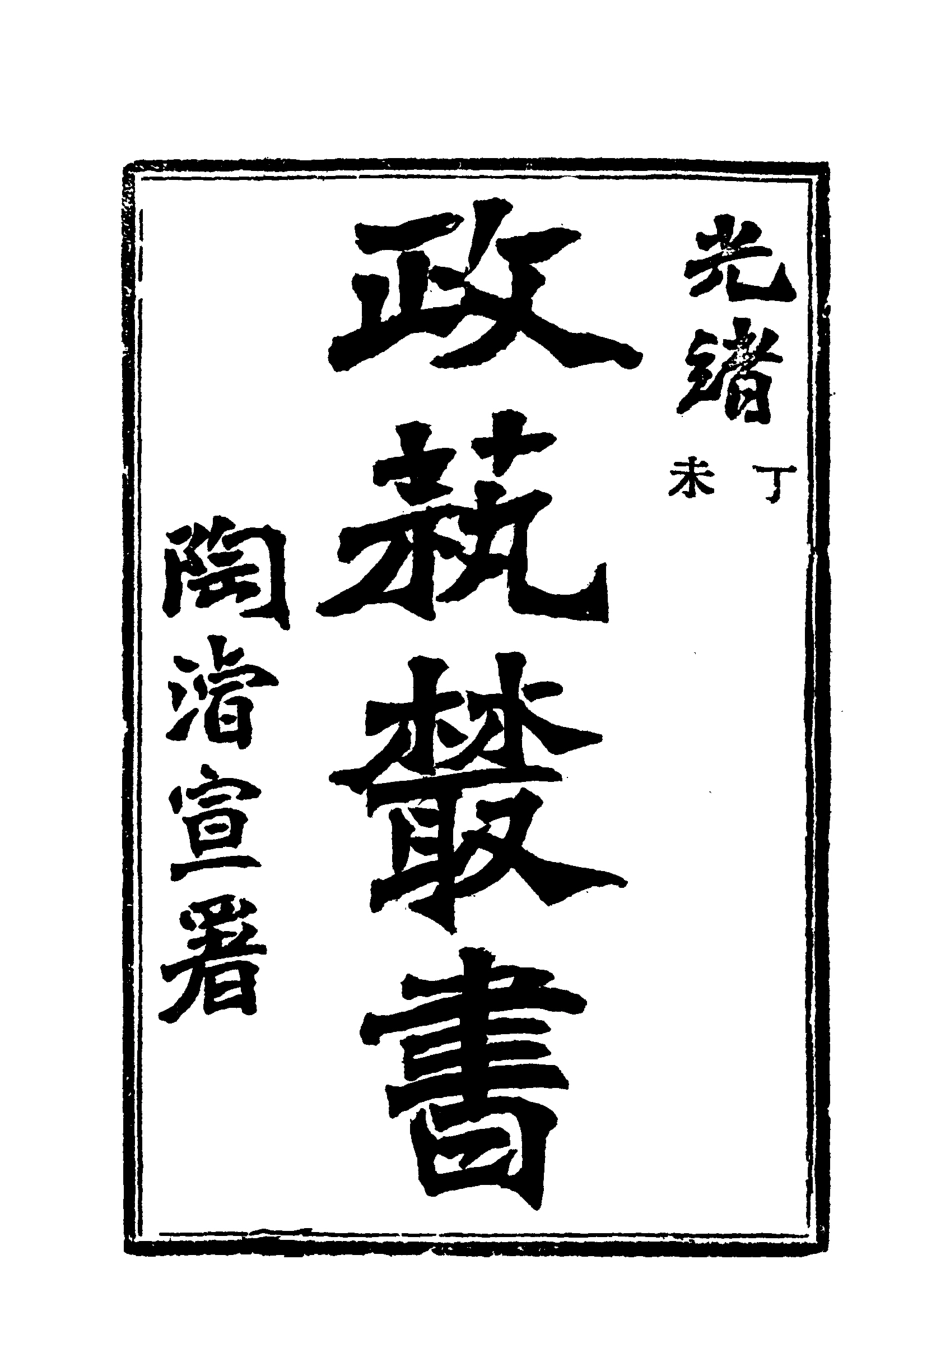 光緒丁未
政萟叢書
陶濬宣署